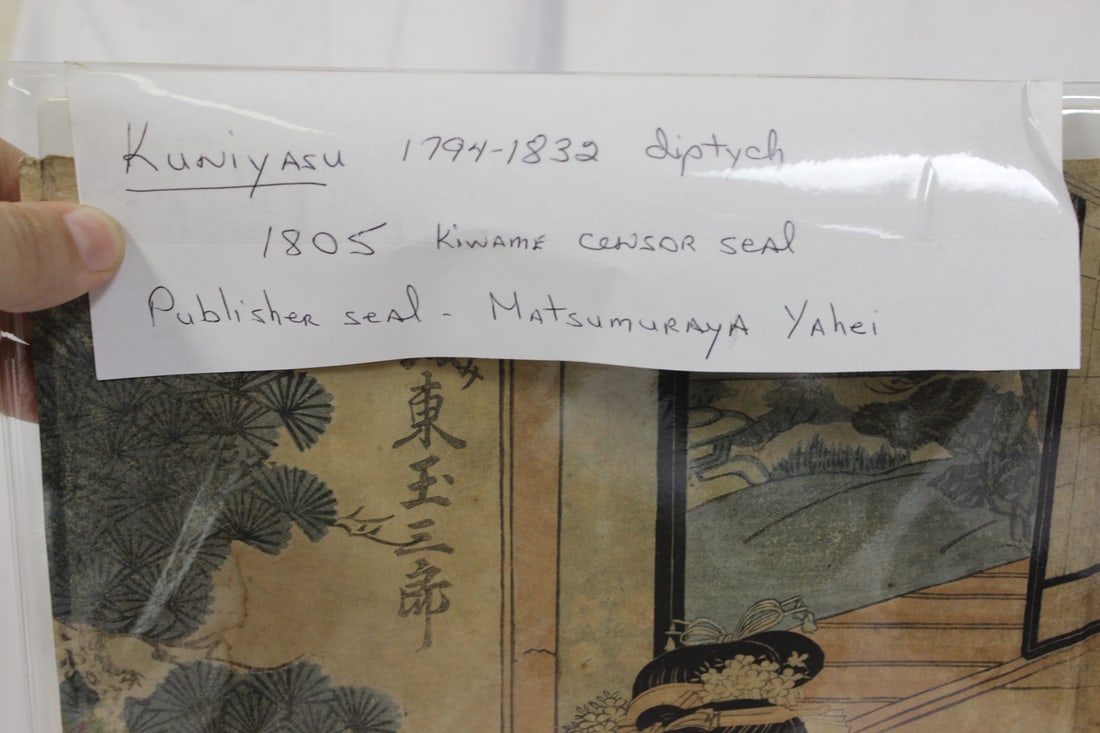 Kuniyasu 1794-1832 diptych
1805 Kiwame censor seal
Publisher seal - Matsumuraya Yahei
東玉三郎